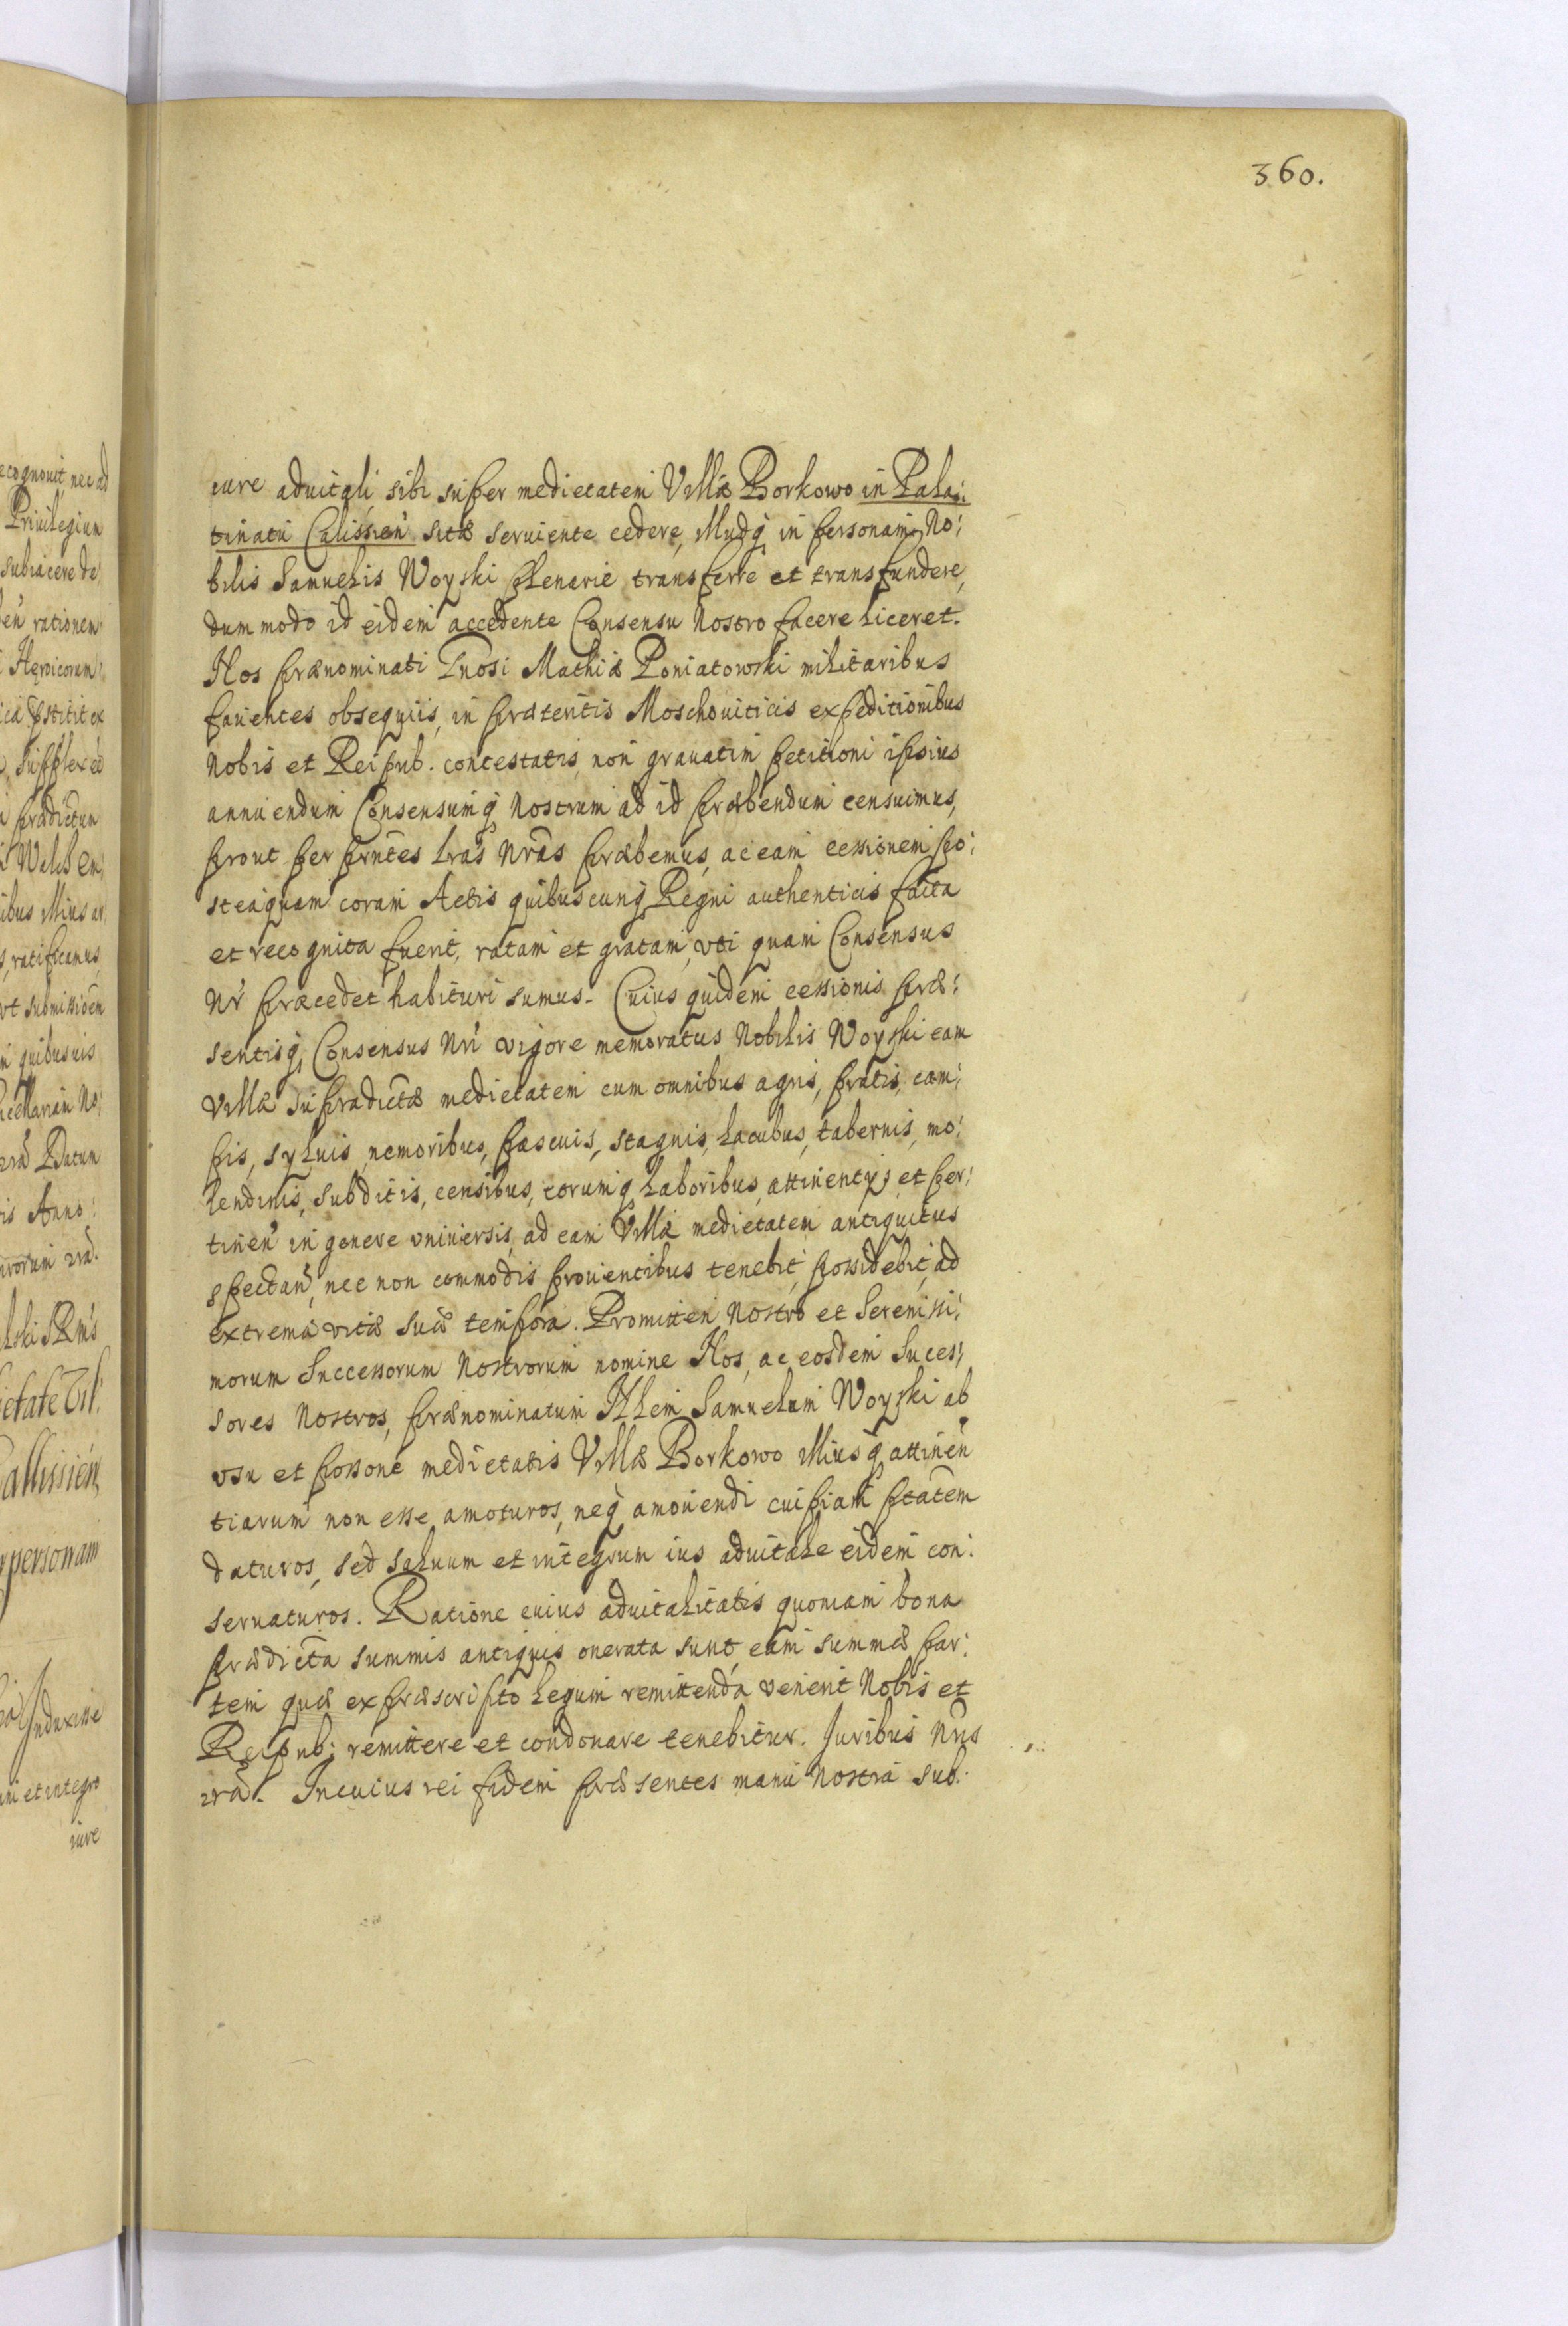 360.
iure aduitali sibi super medietatem Villæ Borkowo in Pala:
tinatu Calissien̄ sitæ seruiente cedere, illudq́ in personam No:
bilis Samuelis Woyski plenarie transferre et transfundere,
dummodo id eidem accedente Consensu Nostro facere liceret.
Nos prænominati Gnosi Mathiæ Poniatowski militaribus
fauentes obsequiis, in præteritis Moschouiticis expeditionibus
Nobis et Reipub. contestatis, non grauatim petitioni ipsius
annuendum Consensumq́ Nostrum ad id præbendum censuimus,
prout per prn̄tes lrās Nrās præbemus, ac eam cessionem po:
steaquam coram Actis quibuscunq́ Regni authenticis facta
et recognita fuerit, ratam et gratam, vti quam Consensus
Nr̄ præcedet habituri sumus. Cuius quidem cessionis præ:
sentisq́ Consensus Nrī vigore memoratus Nobilis Woyski eam
Villæ supradictæ medietatem cum omnibus agris, pratis, cam:
pis, syluis, nemoribus, pascuis, stagnis, lacubus, tabernis, mo:
lendinis, subditis, censibus, eorumq́ laboribus, attinentijs et per:
tinen̄ in genere vniuersis, ad eam Villæ medietatem antiquitus
spectan̄, nec non commodis prouentibus tenebit, possidebit, ad
extrema vitæ suæ tempora. Promitten̄ Nostro et Serenissi:
morum Successorum Nostrorum nomine Nos, ac eosdem Suces:
sores Nostros, prænominatum Nblem Samuelem Woyski ab
vsu et possone medietatis Villæ Borkowo illiusq́ attinen
tiarum non esse amoturos, neq́ amouendi cuipiam ptātem
daturos, sed saluum et integrum ius aduitale eidem con:
seruaturos. Ratione cuius aduitalitatis quoniam bona
prædicta summis antiquis onerata sunt, eam summæ par:
tem quæ ex præscripto legum remittenda venerit Nobis et
Reipub: remittere et condonare tenebitur. Juribus Nris
irā. In cuius rei fidem præsentes manu Nostra sub: